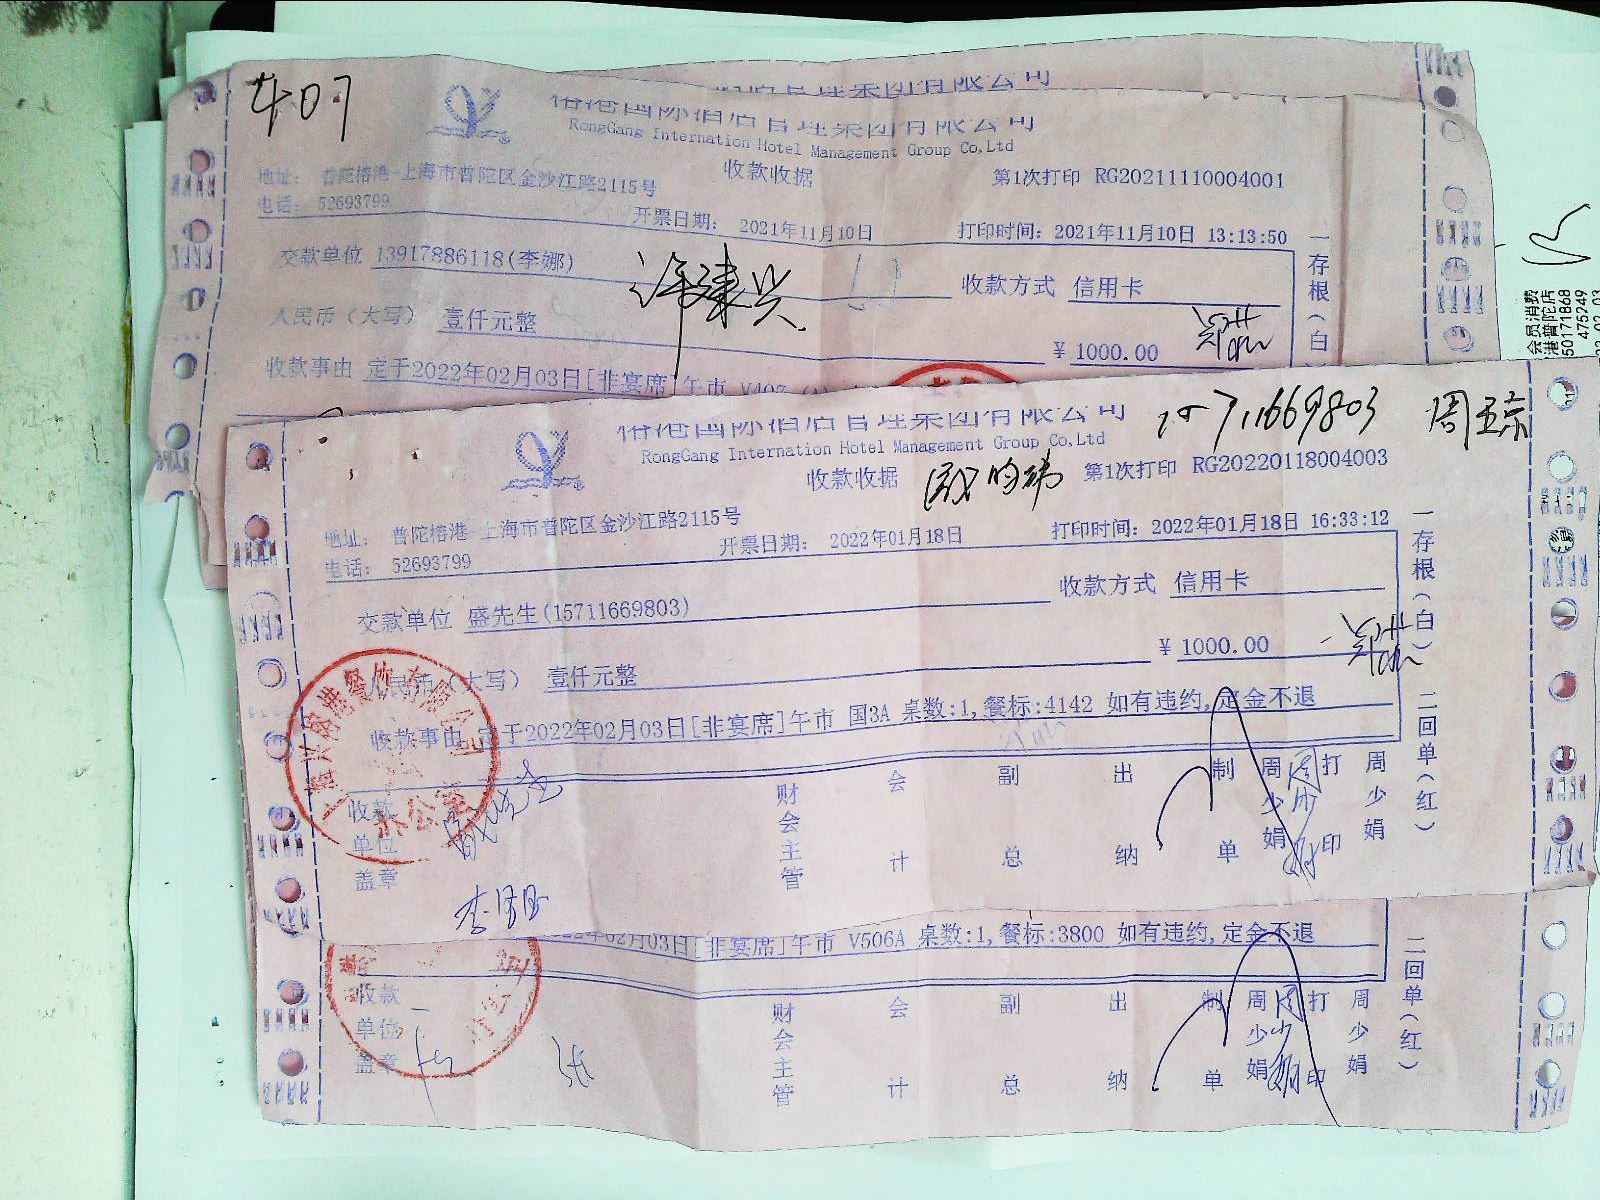 407
榕港国际酒店管理集团有限公司
RongGang International Hotel Management Group Co,Ltd
收款收据
第1次打印 RG20211110004001
地址: 普陀榕港-上海市普陀区金沙江路2115号
电话: 52693799
开票日期: 2021年11月10日
打印时间: 2021年11月10日 13:13:50
交款单位 13917886118(李娜)
许建兴
收款方式 信用卡
人民币(大写) 壹仟元整
¥ 1000.00
收款事由 定于2022年02月03日[非宴席]午市 V407
一存根(白)
会员消费
港普陀店
50171868
475249
榕港国际酒店管理集团有限公司
15711669803 周
RongGang International Hotel Management Group Co,Ltd
收款收据
第1次打印 RG20220118004003
地址: 普陀榕港-上海市普陀区金沙江路2115号
电话: 52693799
开票日期: 2022年01月18日
打印时间: 2022年01月18日 16:33:12
交款单位 盛先生(15711669803)
收款方式 信用卡
人民币(大写) 壹仟元整
¥ 1000.00
收款事由 定于2022年02月03日[非宴席]午市 国3A 桌数:1,餐标:4142 如有违约,定金不退
收款单位盖章
财会主管
会计
副总
出纳
制单
周少娟
打印
周少娟
一存根(白) 二回单(红)
办公室
02月03日[非宴席]午市 V506A 桌数:1,餐标:3800 如有违约,定金不退
收款单位盖章
财会主管
会计
副总
出纳
制单
周少娟
打印
周少娟
二回单(红)